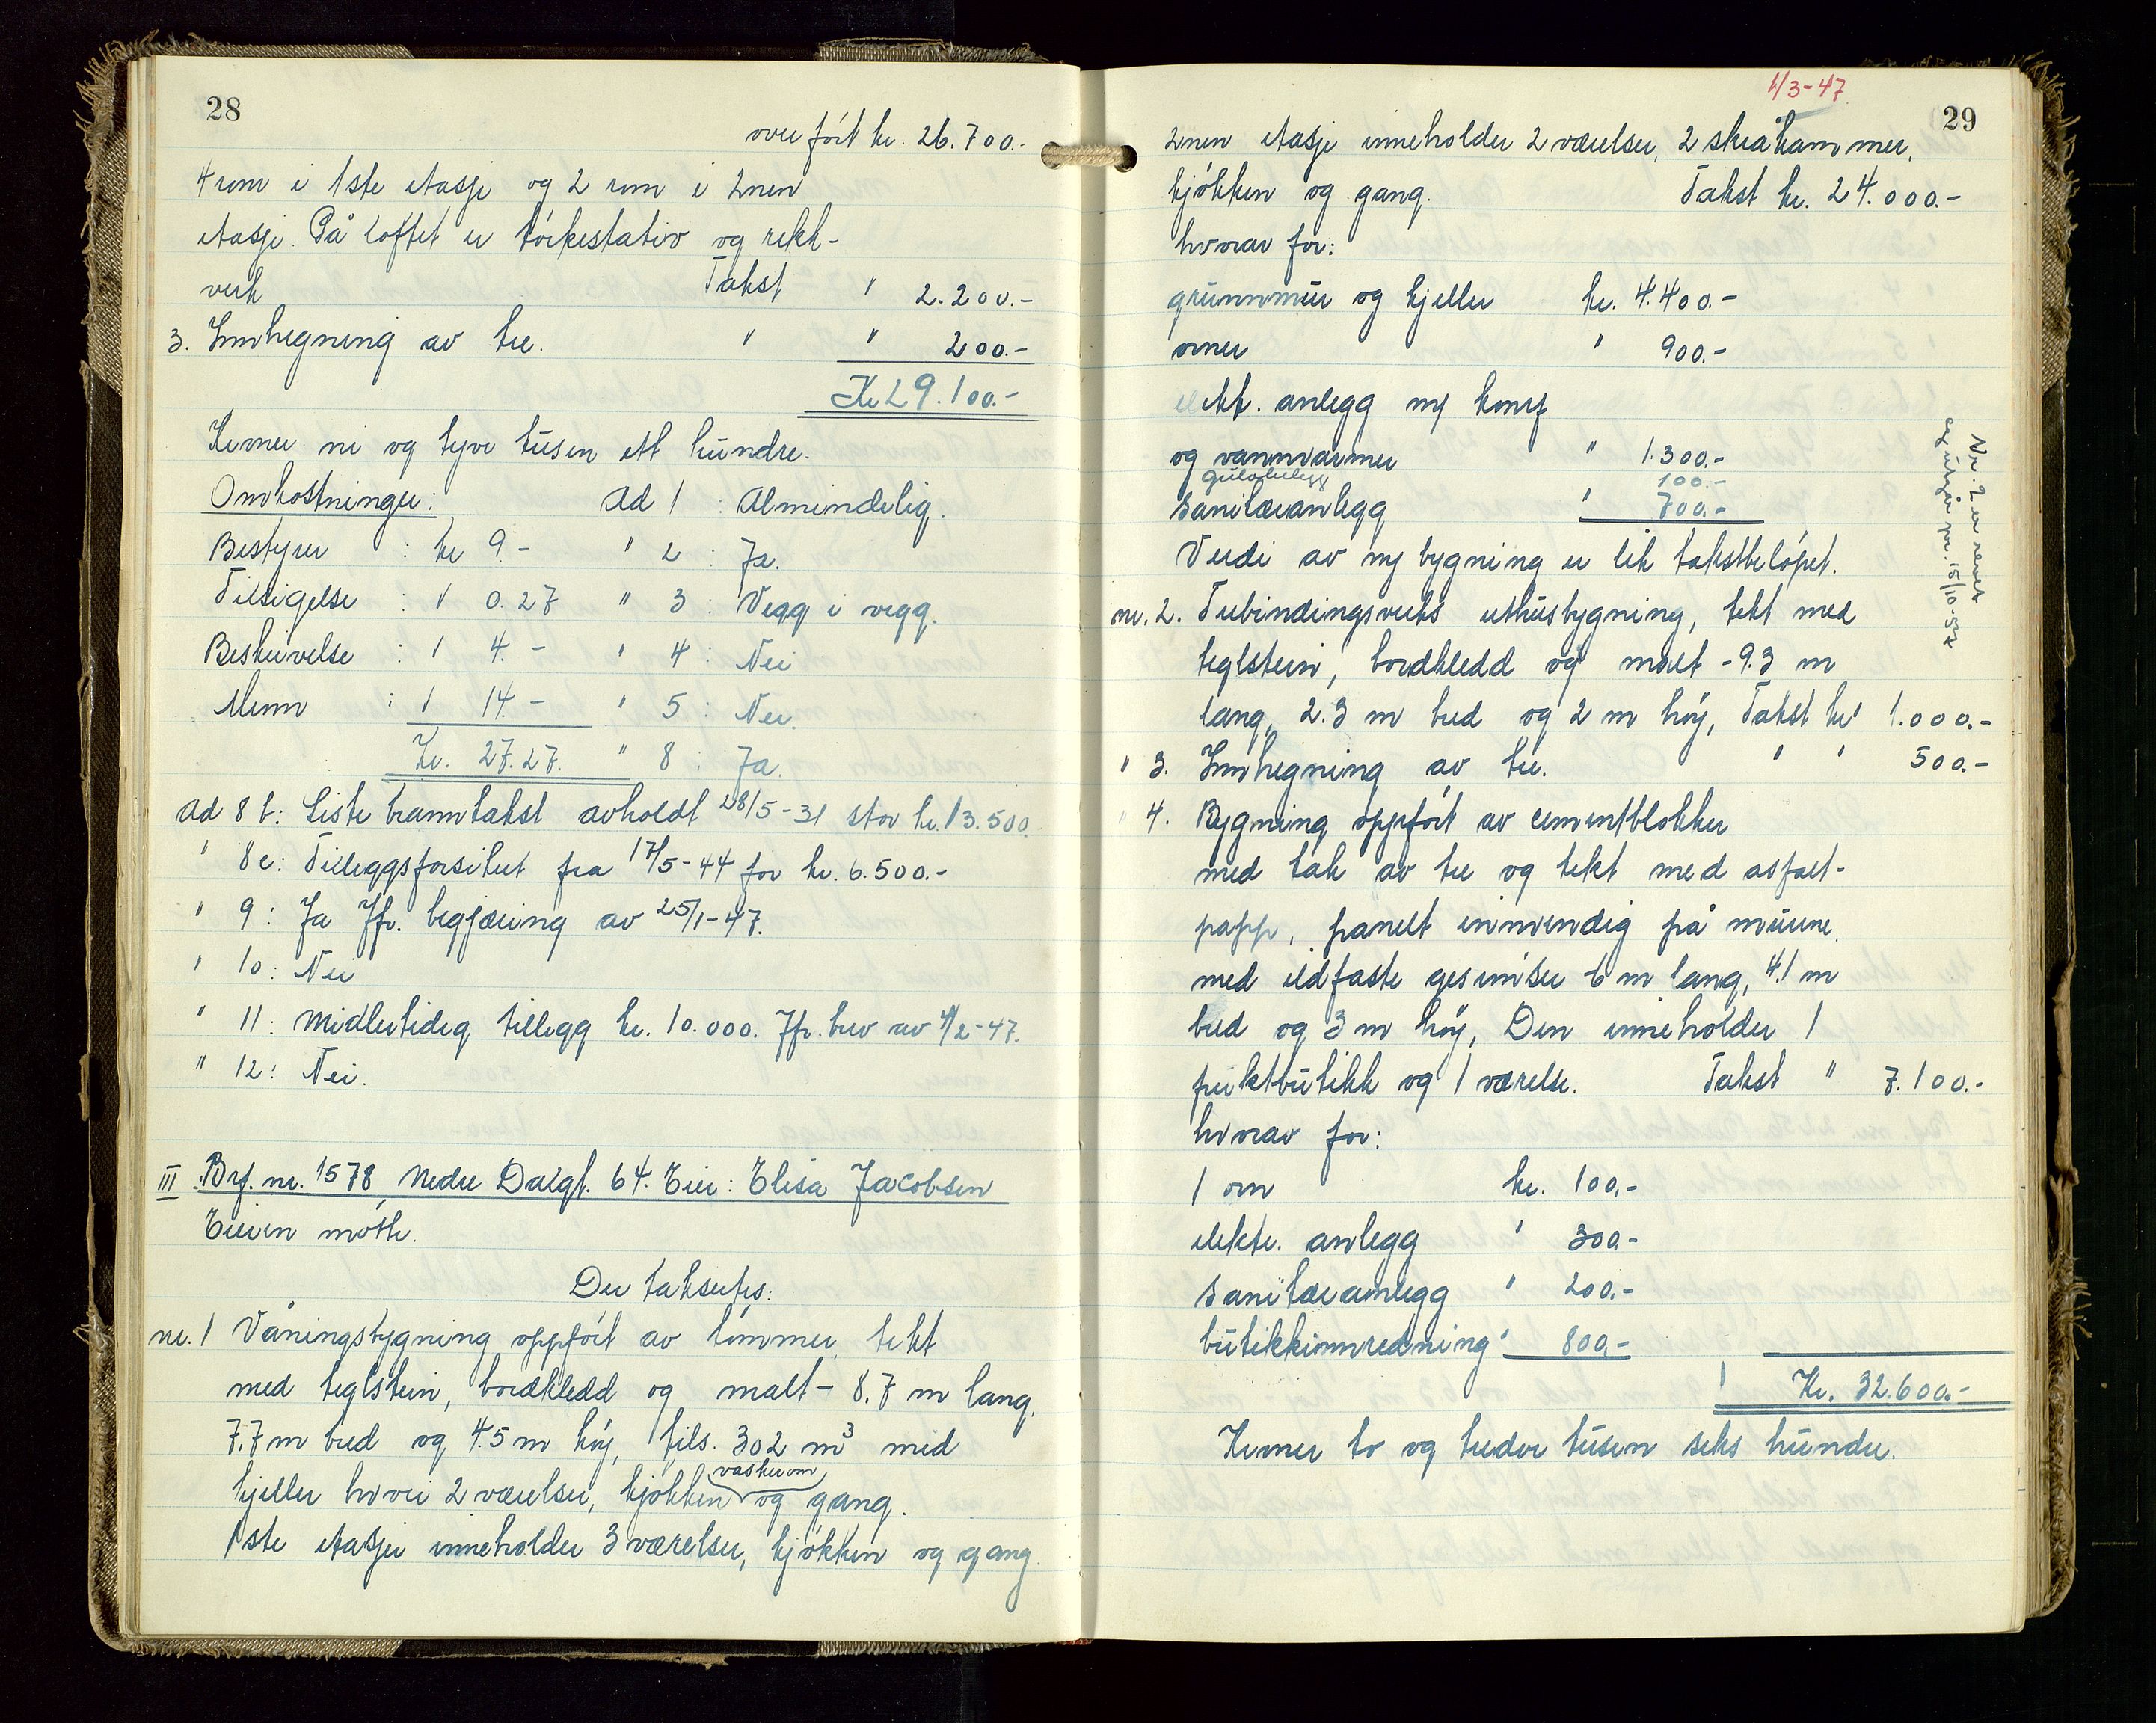 28
overført kr. 26.700.-
4 rom i 1ste etasje og 2 rom i 2nen
etasje. På loftet er tørkestativ og rekk-
verk Takst " 2.200.-
3. Innhegning av tre. " " 200.-
Kr 29.100.-
Kroner ni og tyve tusen ett hundre.
Omkostninger: Ad 1 : Almindelig.
Bestyrer : kr 9.- " 2 : Ja.
Tilsigelse : " 0.27 " 3 : Vegg i vegg.
Beskrivelse : " 4.- " 4 : Nei
Menn : " 14.- " 5 : Nei.
Kr. 27.27. " 8 : Ja.
Ad 8 b: Siste branntakst avholdt 28/5-31 stor kr. 13.500.
" 8c: Tilleggsforsikret fra 17/5-44 for kr. 6.500.-
" 9 : Ja Jfr. begjæring av 25/1-47.
" 10 : Nei
" 11 : Midlertidig tillegg kr. 10.000. Jfr. brev av 4/2-47.
" 12 : Nei.
III Brf. nr. 1578, Nedre Dalgt. 64. Eier: Elisa Jacobsen
Eieren møtte.
Der taksertes:
nr. 1 Våningsbygning oppført av tømmer, tekt
med teglstein, bordkledd og malt - 8.7 m lang,
7.7 m bred og 4.5 m høy, tils. 302 m³ med
vaskerom
kjeller hvori 2 værelser, kjøkken og gang.
1ste etasje inneholder 3 værelser, kjøkken og gang.
1/3-47
29
2nen etasje inneholder 2 værelser, 2 skråkammer,
kjøkken og gang. Takst kr. 24.000.-
hvorav for:
grunnmur og kjeller kr. 4.400.-
ovner " 900.-
elektr. anlegg m/ komf
og vannvarmer " 1.300.-
gulvbelegg 100.-
sanitæranlegg " 700.-
Verdi av ny bygning er lik takstbeløpet.
nr. 2. Trebindingsverks uthusbygning, tekt med
teglstein, bordkledd og malt - 9.3 m
lang, 2.3 m bred og 2 m høy, Takst kr 1.000.-
" 3. Innhegning av tre. " " 500.-
" 4. Bygning oppført av cementblokker
med tak av tre og tekt med asfalt-
papp, panelt innvendig på murene
med ildfaste gesimser 6 m lang, 4.1 m
bred og 3 m høy, Den inneholder 1
fruktbutikk og 1 værelse. Takst " 7.100.-
hvorav for:
1 ovn kr. 100.-
elektr. anlegg " 300.-
sanitæranlegg " 200.-
butikkinnredning " 800.-
" Kr. 32.600.-
Kroner to og tredve tusen seks hundre.
Nr. 2 er revet
og utgår pr. 15/10-57